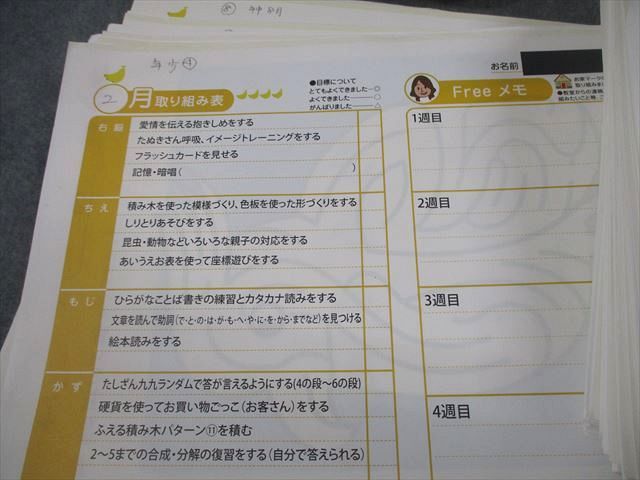 年少④
お名前
2月取り組み表
●目標について
とてもよくできました―◎
よくできました――○
がんばりました――△
Free メモ
お家マークの
取り組みを
●教室からの連絡
組みたいこと 等
右脳
愛情を伝える抱きしめをする
たぬきさん呼吸、イメージトレーニングをする
フラッシュカードを見せる
記憶・暗唱( )
ちえ
積み木を使った模様づくり、色板を使った形づくりをする
しりとりあそびをする
昆虫・動物などいろいろな親子の対応をする
あいうえお表を使って座標遊びをする
もじ
ひらがなことば書きの練習とカタカナ読みをする
文章を読んで助詞(で・と・の・は・が・も・へ・や・に・を・から・までなど)を見つける
絵本読みをする
かず
たしざん九九ランダムで答が言えるようにする(4の段〜6の段)
硬貨を使ってお買い物ごっこ(お客さん)をする
ふえる積み木パターン⑪を積む
2〜5までの合成・分解の復習をする(自分で答えられる)
1週目
2週目
3週目
4週目